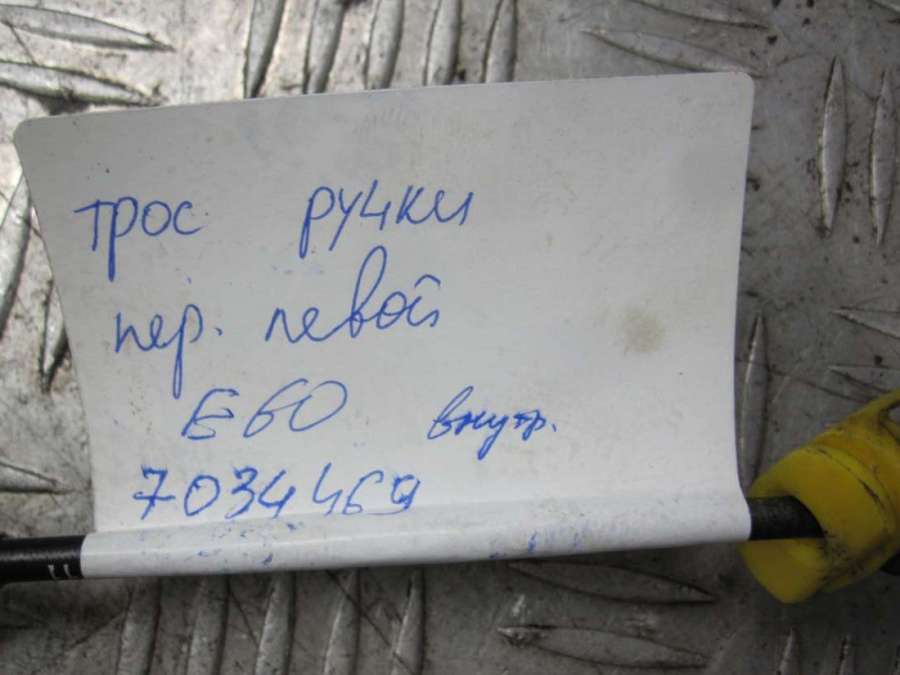 трос ручки
пер. левой
E60 внутр.
7034469